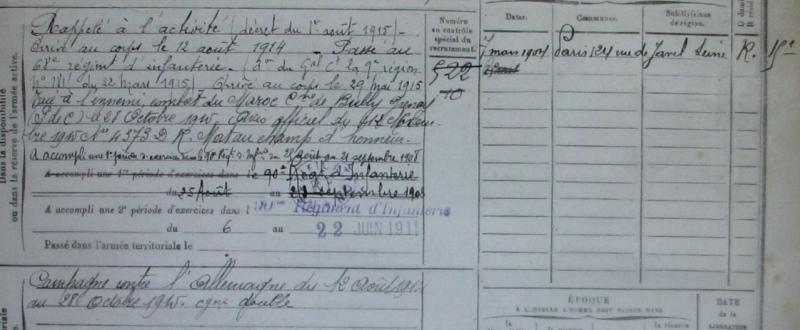 Rappelé à l'activité (décret du 1er août 1915)
Arrivé au corps le 12 août 1914 - Passé au
68e régiment d'infanterie. (d. du Gal Ct la 9e région
No du 22 mars 1915) Arrivé au corps le 29 mai 1915
Tué à l'ennemi, combat du Maroc Cne de Bully Grenay
(P de C) le 28 Octobre 1915, Avis officiel du
bre 1915 No 4573 D R. Mort au champ d'honneur.
A accompli une 1ère période d'exercices dans le 90e Régt d'Infie du 25 Août au 21 septembre 1908
A accompli une 1re période d'exercices dans le 90e Régt d'Infanterie
du 25 Août au septembre 1908
A accompli une 2e période d'exercices dans l Régiment d'Infanterie
du 6 au 22 JUIN 1911
Passé dans l'armée territoriale le
Campagne contre l'Allemagne du 12 Août 1914
au 28 Octobre 1915. double
Dans la disponibilité
ou dans la réserve de l'armée active.
Numéro
au contrôle
spécial du
recrutement.
522
10
Dates.
Communes.
Subdivisions
de région.
7 mars 1907 Paris 124 rue de Seine R.
ÉPOQUE
À LAQUELLE L'HOMME DOIT PASSER DANS
la réserve
DATE
de la
LIBÉRATION